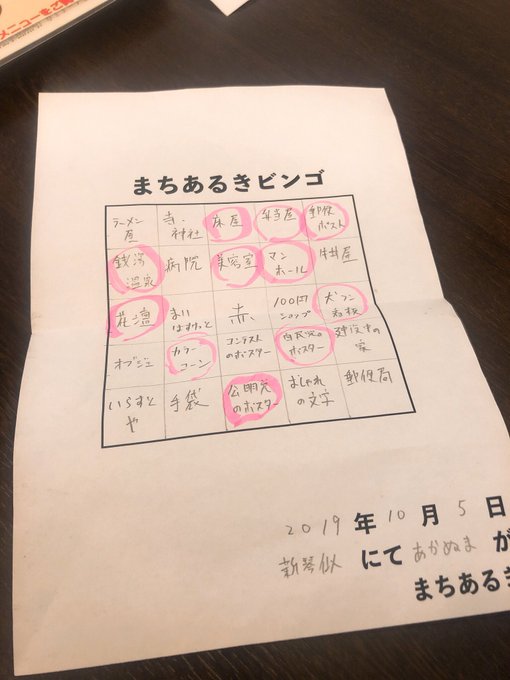 まちあるきビンゴ
ラーメン屋 寺・神社 床屋 弁当屋 郵便ポスト
銭湯温泉 病院 美容室 マンホール 牛丼屋
花壇 まいばすけっと 赤 100円ショップ 犬フン看板
オブジェ カラーコーン コンテストのポスター 自民党のポスター 建設中の家
いらすとや 手袋 公明党のポスター おしゃれの文字 郵便局
2019年10月5日
新琴似にてあかぬまが
まちあるき